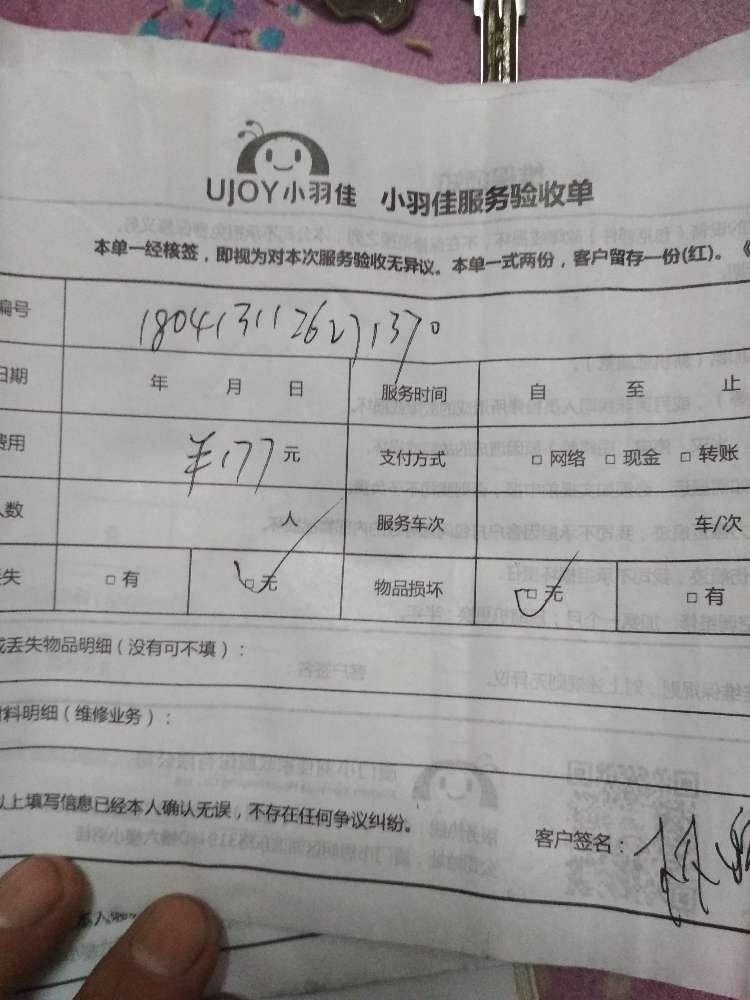 UJOY小羽佳 小羽佳服务验收单
本单一经核签，即视为对本次服务验收无异议。本单一式两份，客户留存一份(红)。
编号 1804131126271370
日期 年 月 日 服务时间 自 至 止
费用 ¥177元 支付方式 □ 网络 □ 现金 □ 转账
人数 人 服务车次 车/次
丢失 □ 有 □ 无 物品损坏 □ 无 □ 有
或丢失物品明细（没有可不填）：
材料明细（维修业务）：
以上填写信息已经本人确认无误，不存在任何争议纠纷。
客户签名：